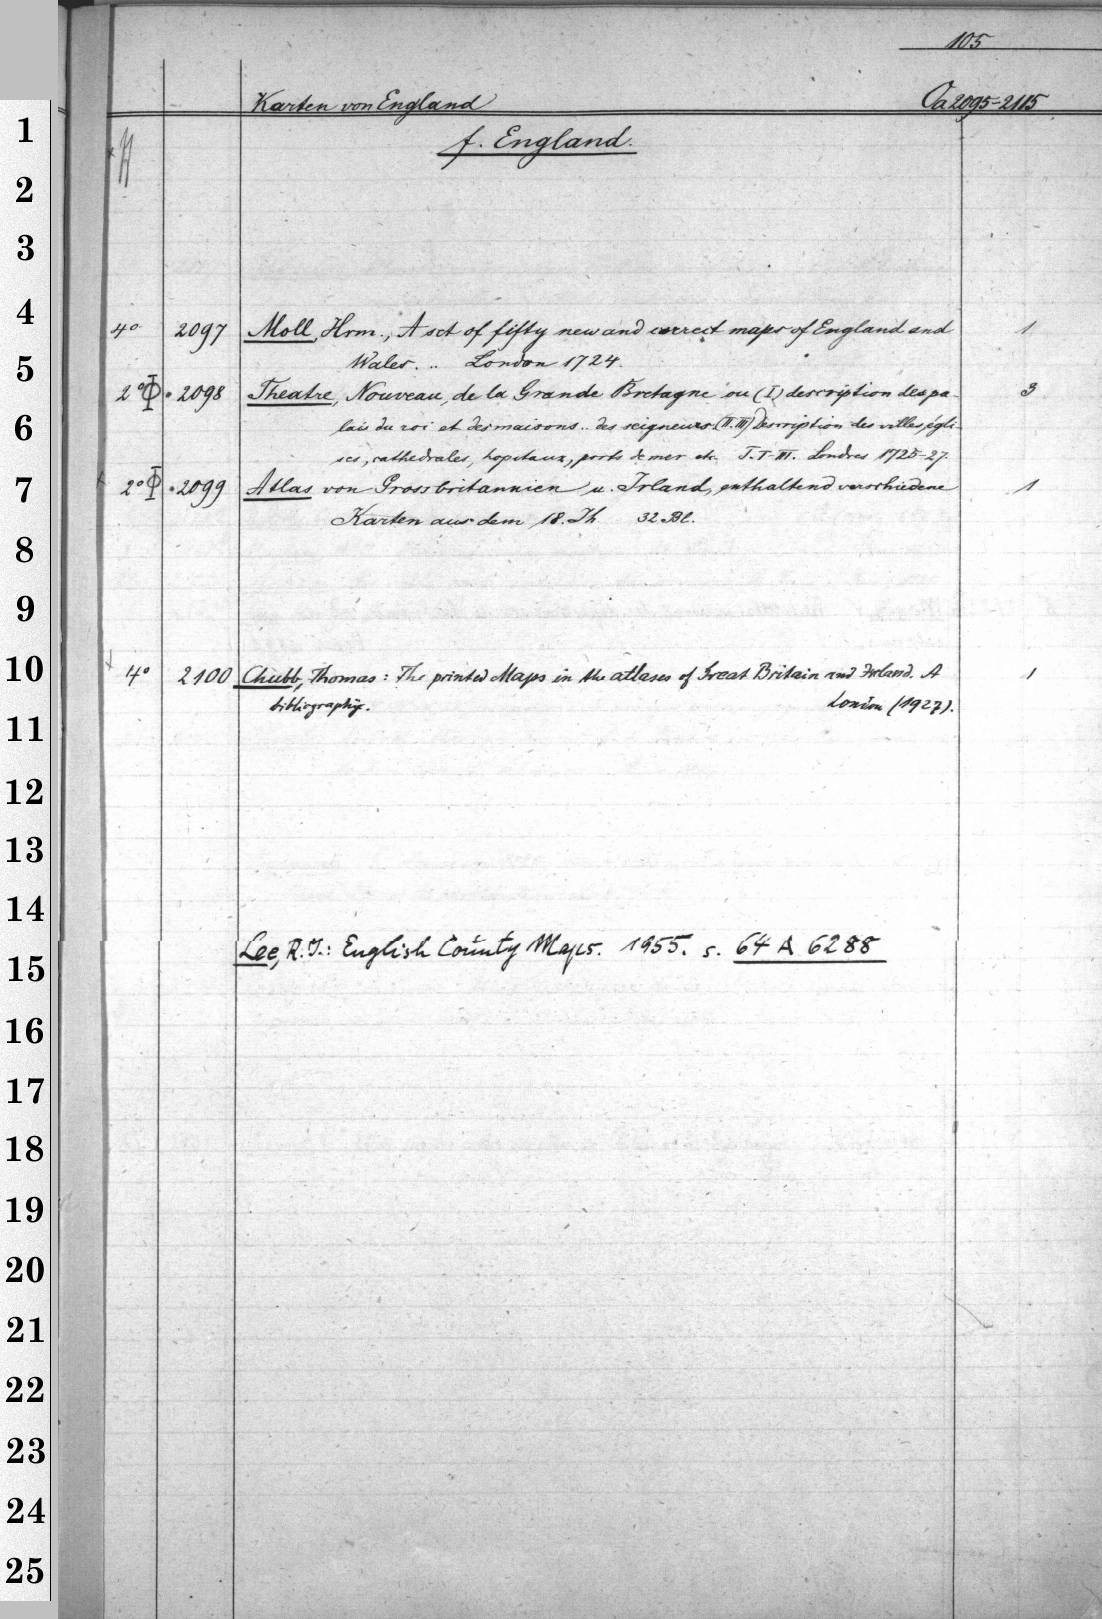 105
Karten von England Oa 2095-2115
f. England.
4° 2097 Moll, Hrm., A set of fifty new and correct maps of England and 1
Wales. .. London 1724.
2° Φ • 2098 Theatre, Nouveau, de la Grande Bretagne ou (I) description des pa- 3
lais du roi et des maisons .. des seigneurs (II.III) Description des villes, égli-
ses, cathedrales, hopitaux, ports de mer etc. T.I-III. Londres 1725-27.
2° Φ • 2099 Atlas von Grossbritannien u. Irland, enthaltend verschiedene 1
Karten aus dem 18. Jh 32 Bl.
4° 2100 Chubb, Thomas: The printed Maps in the atlases of Great Britain and Ireland. A 1
bibliography. London (1927).
Lee, R.J.: English County Maps. 1955. s. 64 A 6288
1
2
3
4
5
6
7
8
9
10
11
12
13
14
15
16
17
18
19
20
21
22
23
24
25